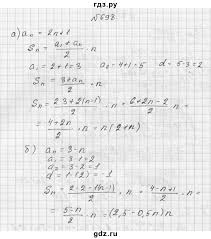 №698
а) aₙ = 2n+1
Sₙ = (a₁+aₙ)/2 · n
a₁ = 2+1 = 3 a₂ = 4+1 = 5 d = 5-3 = 2
Sₙ = (3+aₙ)/2 · n
Sₙ = (2·3+2(n-1))/2 · n = (6+2n-2)/2 · n =
= (4+2n)/2 · n = n(2+n)
б) aₙ = 3-n
a₁ = 3-1 = 2
a₂ = 3-2 = 1
d = 1-(2) = -1
Sₙ = (2·2-1(n-1))/2 · n = (4-n+1)/2 · n =
= (5-n)/2 · n = (2,5-0,5n)n
gdz.ru